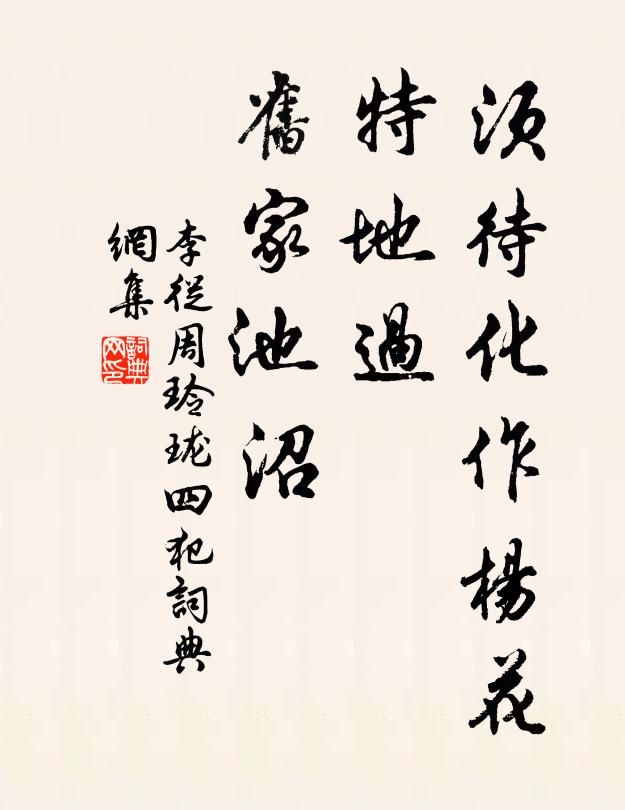 須待化作楊花
特地過
舊家池沼
李從周玲瓏四犯詞典
網集
詞典
网印